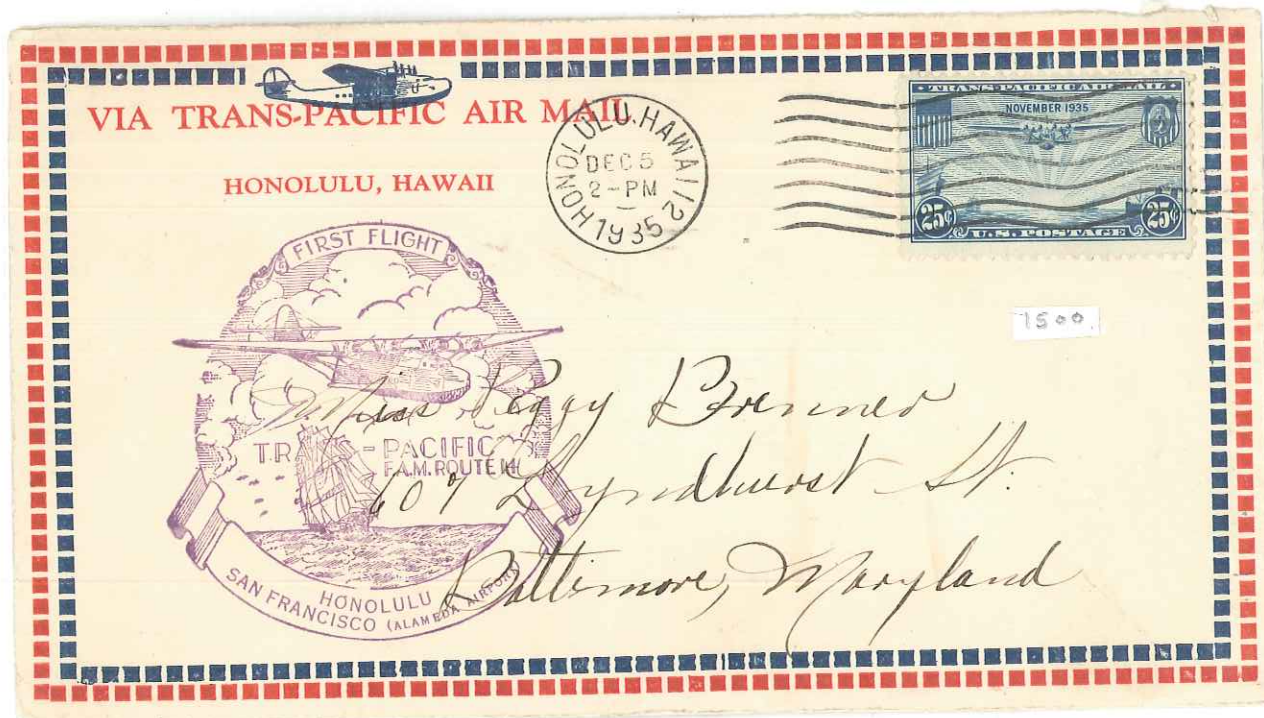 VIA TRANS-PACIFIC AIR MAIL
HONOLULU, HAWAII
HONOLULU, HAWAII 2
DEC 5
2-PM
1935
TRANS-PACIFIC AIR MAIL
NOVEMBER 1935
25¢ 25¢
U.S. POSTAGE
1500
FIRST FLIGHT
TRANS-PACIFIC
F.A.M. ROUTE 14
HONOLULU
SAN FRANCISCO (ALAMEDA AIRPORT)
Miss Peggy Brenner
607 Lyndhurst St.
Baltimore, Maryland